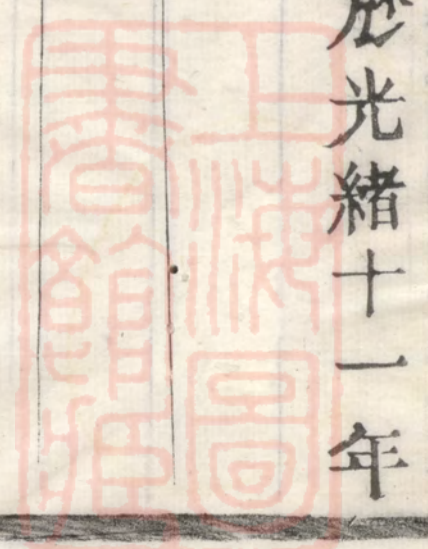 光緒十一年
上海圖
書館藏